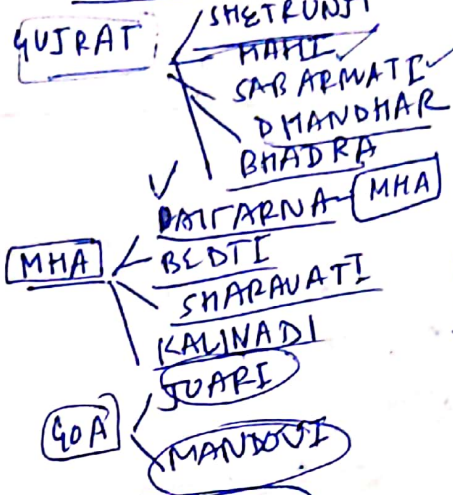 SHETRUNJI
GUJRAT
MAHI
SABARMATI
DHANDHAR
BHADRA
VAITARNA - MHA
MHA
BEDTI
SHARAVATI
KALINADI
JUARI
GOA
MANDOVI